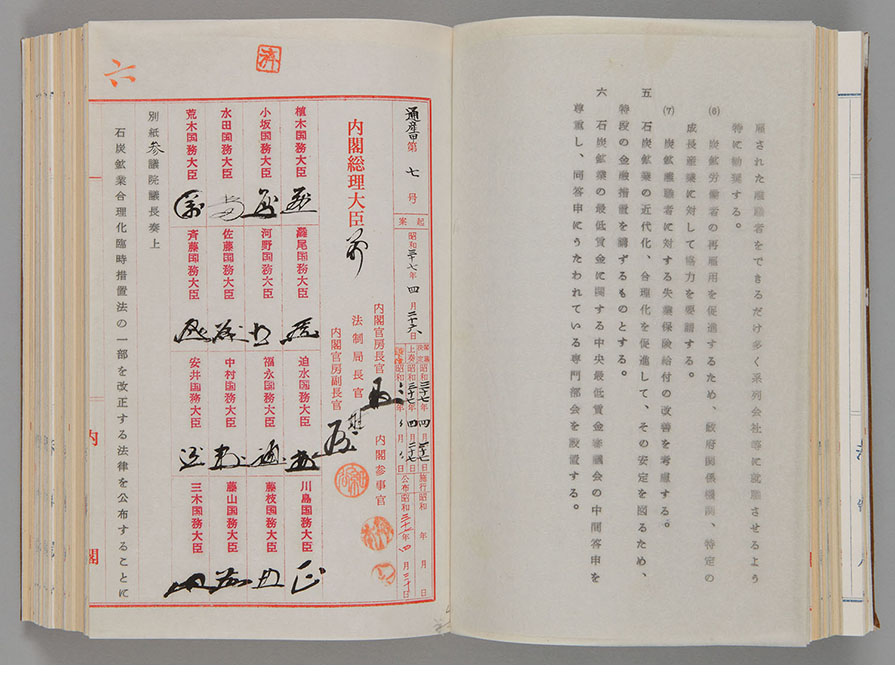 雇された離職者をできるだけ多く系列会社等に就職させるよう
特に勧奨する。
(6) 炭鉱労働者の再雇用を促進するため、政府関係機関、特定の
成長産業に対して協力を要請する。
(7) 炭鉱離職者に対する失業保険給付の改善を考慮する。
五 石炭鉱業の近代化、合理化を促進して、その安定を図るため、
特段の金融措置を講ずるものとする。
六 石炭鉱業の最低賃金に関する中央最低賃金審議会の中間答申を
尊重し、同答申にうたわれている専門部会を設置する。
六
済
通産甲第 七 号
起案 昭和三十七年 四 月 二十六日
上奏 昭和三十七年 四 月 二十七日
施行 昭和 年 月 日
公布 昭和三十七年 四 月三十日
内閣総理大臣
内閣官房長官
法制局長官
内閣官房副長官
内閣参事官
植木国務大臣
灘尾国務大臣
迫水国務大臣
川島国務大臣
小坂国務大臣
河野国務大臣
福永国務大臣
藤枝国務大臣
水田国務大臣
佐藤国務大臣
中村国務大臣
藤山国務大臣
荒木国務大臣
斉藤国務大臣
安井国務大臣
三木国務大臣
別紙参議院議長奏上
石炭鉱業合理化臨時措置法の一部を改正する法律を公布することに
内 閣